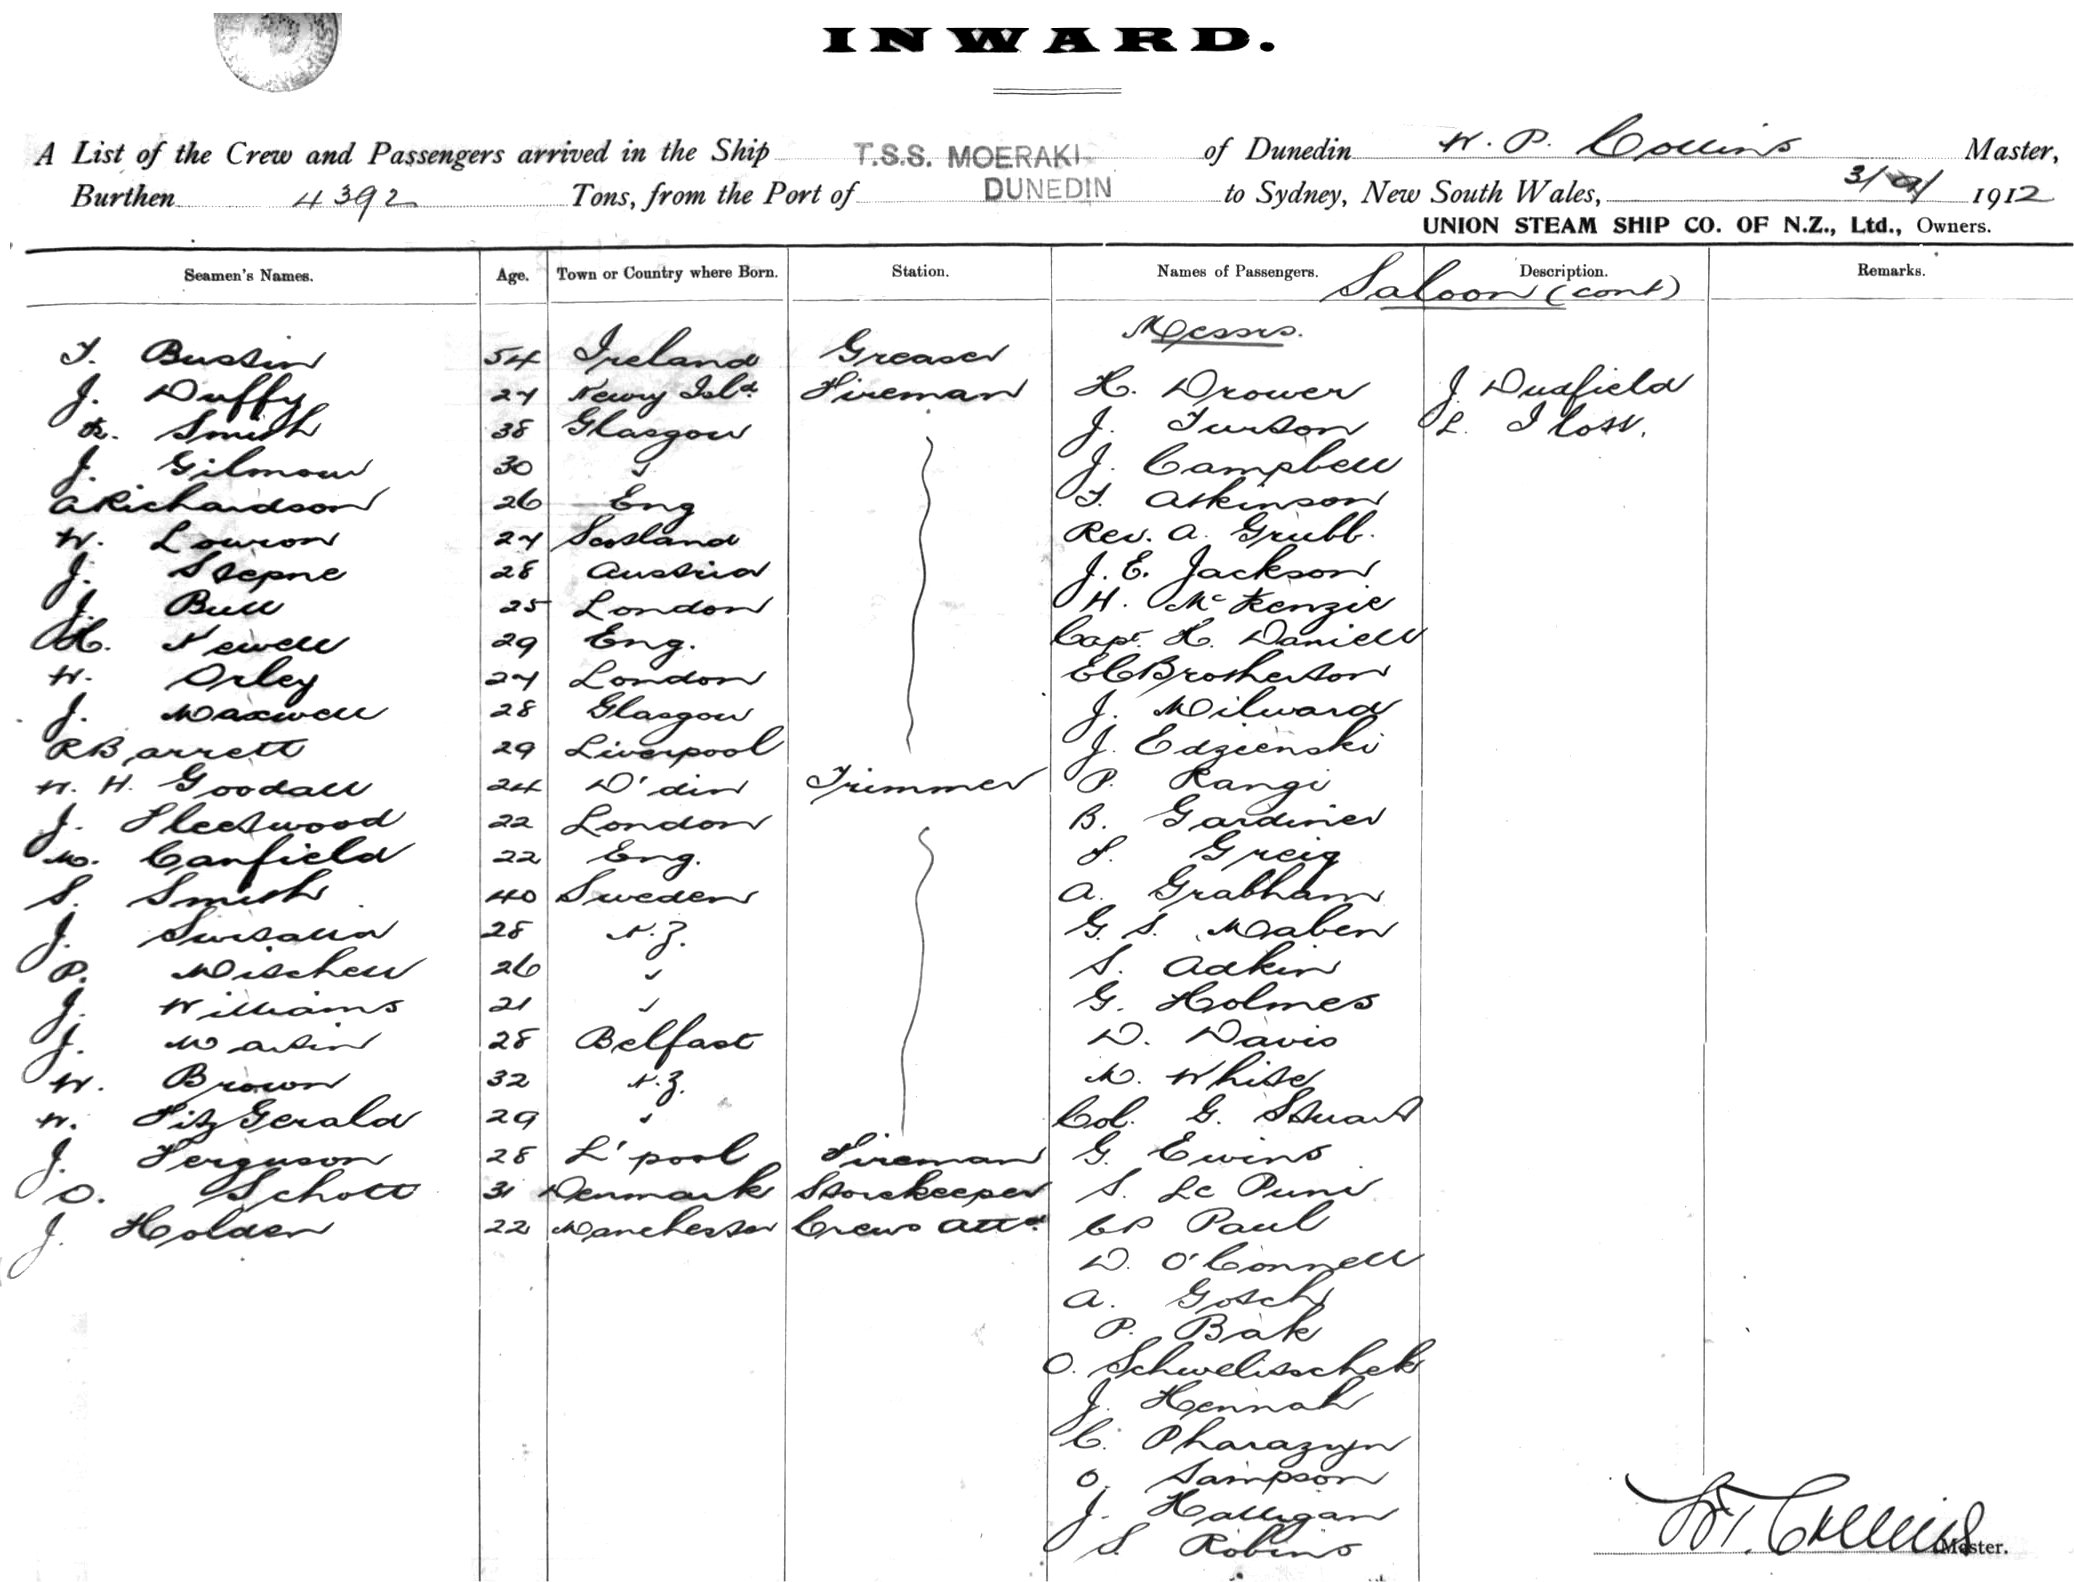 INWARD.
A List of the Crew and Passengers arrived in the Ship T.S.S. MOERAKI of Dunedin W. P. Collins Master,
Burthen 4392 Tons, from the Port of DUNEDIN to Sydney, New South Wales, 1912
UNION STEAM SHIP CO. OF N.Z., Ltd., Owners.
Seamen's Names. Age. Town or Country where Born. Station. Names of Passengers. Description. Remarks.
Saloon (cont)
Messrs.
T. Bustin 54 Ireland Greaser
J. Duffy 27 Newry Isld. Fireman H. Drower J. Dudfield
R. Smith 38 Glasgow J. Turton L.
J. Gilmour 30 " J. Campbell
A Richardson 26 Eng T. Atkinson
W. Lowron 27 Scotland Rev. A. Grubb.
J. Stepne 28 Austria J. E. Jackson
J. Bull 25 London H. McKenzie
H. Newell 29 Eng. Capt. H. Daniell
W. Orley 27 London E C Brotherton
J. Maxwell 28 Glasgow J. Milward
R Barrett 29 Liverpool J. Edzienski
W. H. Goodall 24 D'din Trimmer P. Rangi
J. Fleetwood 22 London B. Gardiner
M. Canfield 22 Eng. F. Greig
S. Smith 40 Sweden A. Grabham
J. 28 N.Z. G. S. Maben
P. Mitchell 26 " S. Adkin
J. Williams 21 " G. Holmes
J. Martin 28 Belfast D. Davis
W. Brown 32 N.Z. M. White
W. FitzGerald 29 " Col. G. Stuart
J. Ferguson 28 L'pool Fireman G. Ewins
O. Schott 31 Denmark Storekeeper S. Le Pine
J. Holden 22 Manchester Crews Attd. C P Paul
D. O'Connell
A. Gotch
P. Bak
O. Schwelitschek
J. Hennah
C. Pharazyn
O. Sampson
J. Halligan
S. Robins
Master.